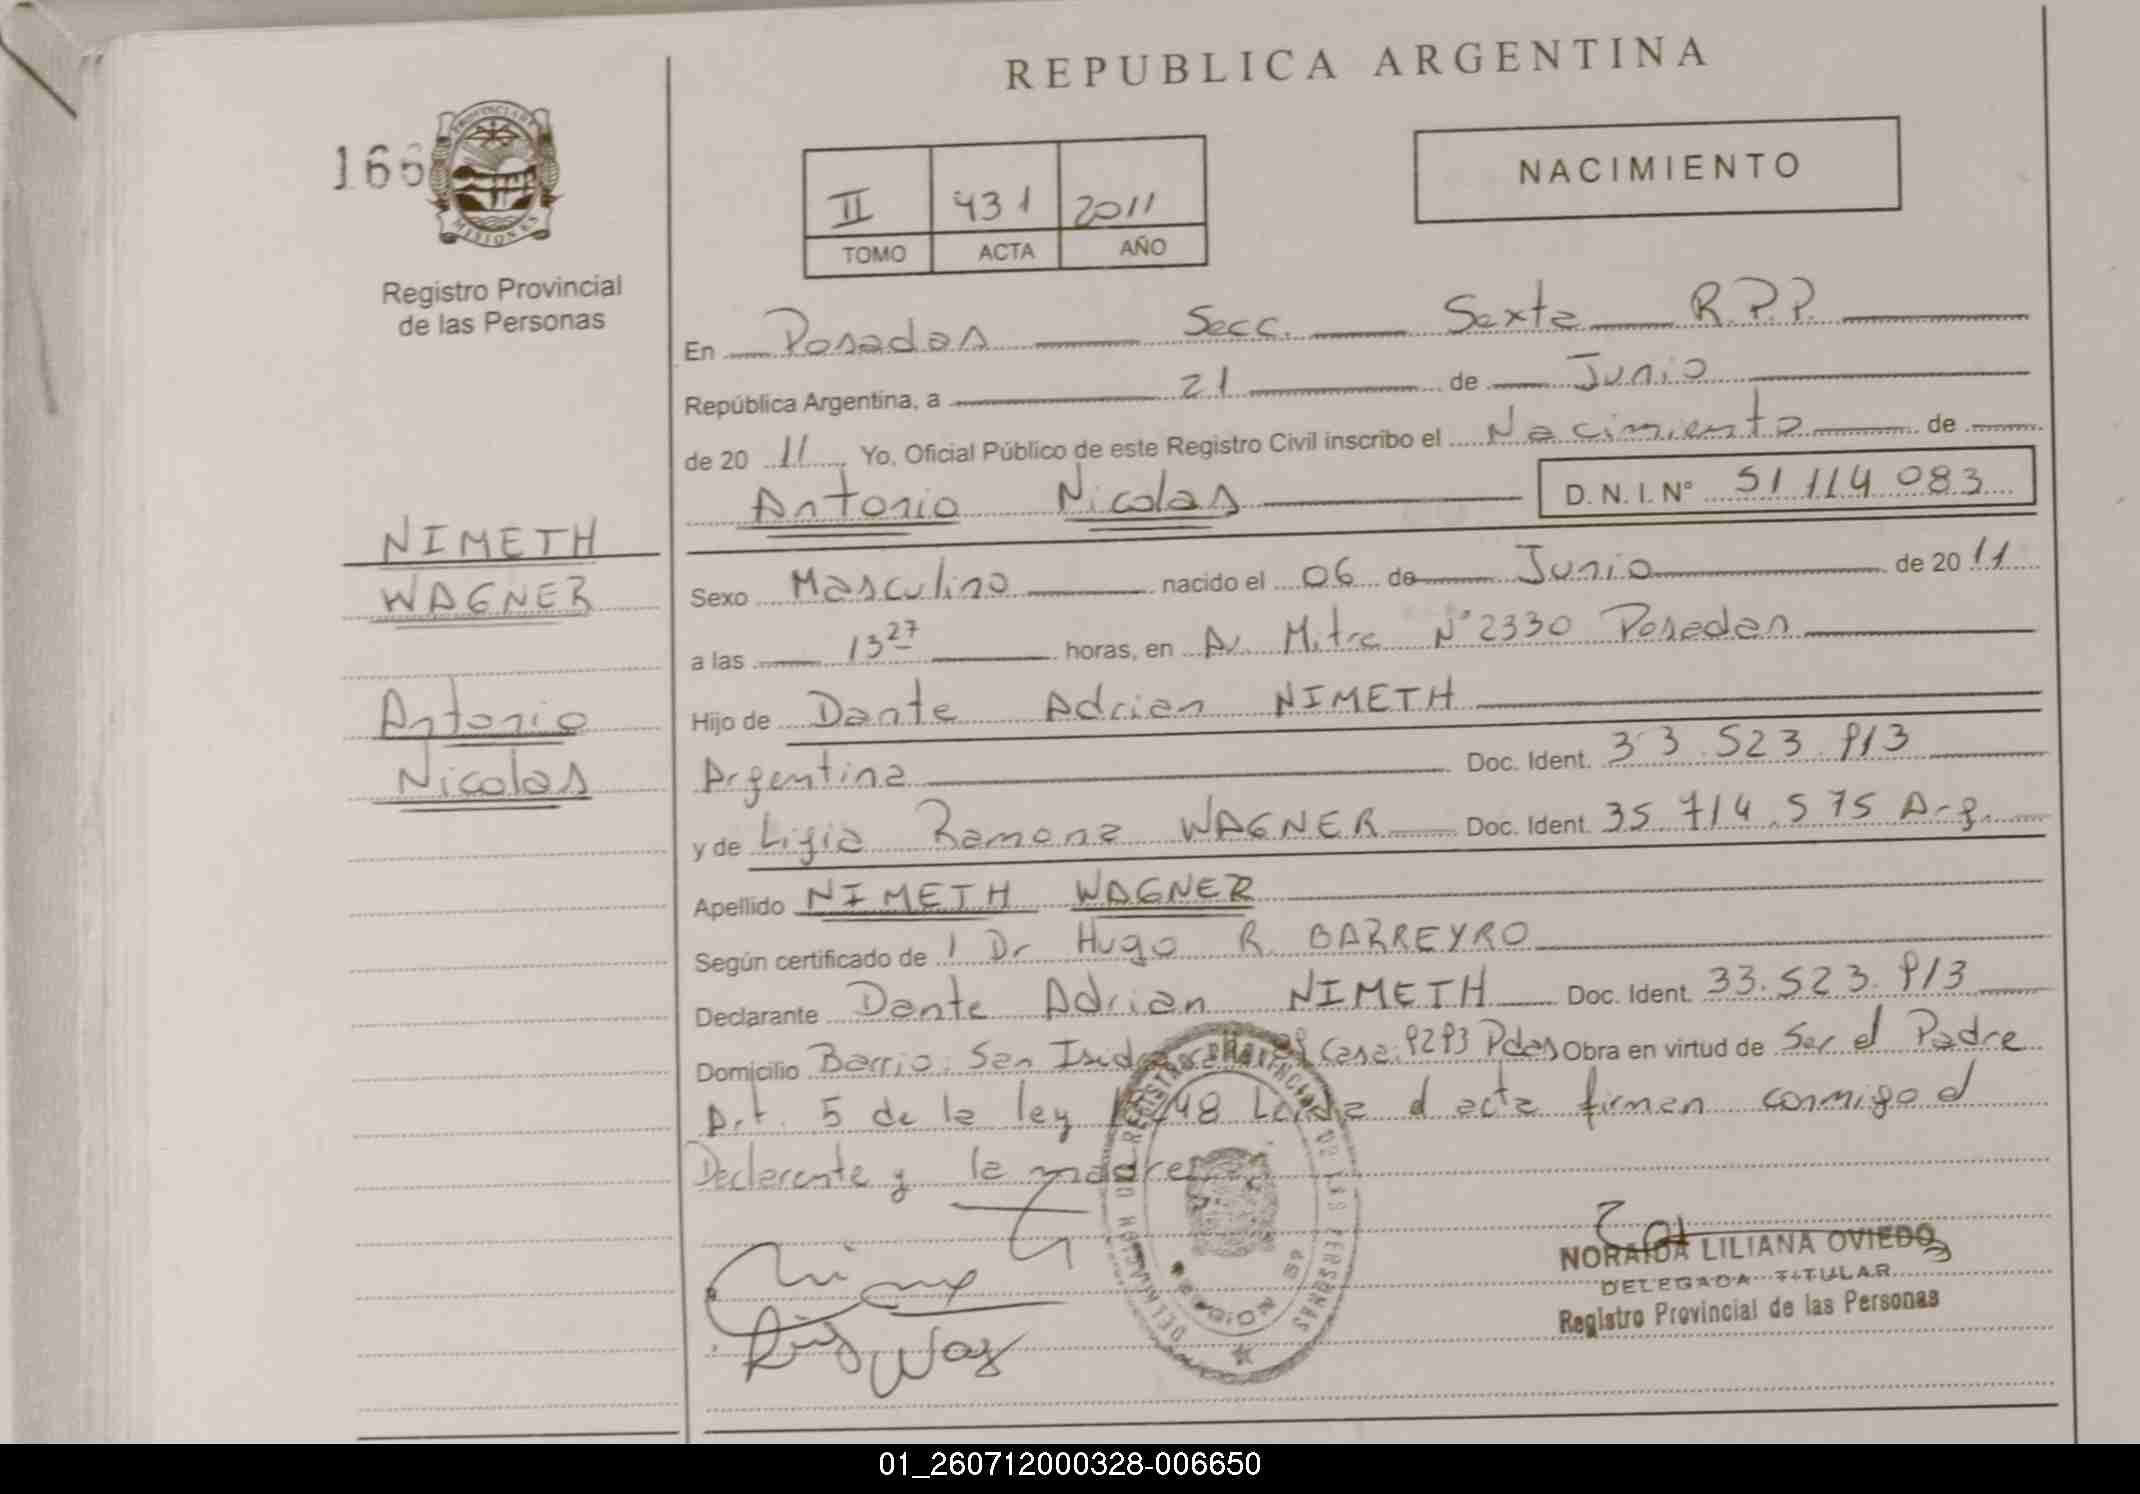 REPUBLICA ARGENTINA
166
PROVINCIA DE
MISIONES
Registro Provincial
de las Personas
NACIMIENTO
II 431 2011
TOMO ACTA AÑO
En Posadas Secc. Sexta R.P.P.
República Argentina, a 21 de Junio
de 20 11 Yo, Oficial Público de este Registro Civil inscribo el Nacimiento de
Antonio Nicolas D.N.I. Nº 51 114 083
NIMETH
WAGNER
Antonio
Nicolas
Sexo Masculino nacido el 06 de Junio de 20 11
a las 13 27 horas, en Av. Mitre Nº 2330 Posadas
Hijo de Dante Adrian NIMETH
Argentina Doc. Ident. 33.523.913
y de Ligia Ramona WAGNER Doc. Ident. 35 714.575 Arg.
Apellido NIMETH WAGNER
Según certificado de 1 Dr Hugo R. BARREYRO
Declarante Dante Adrian NIMETH Doc. Ident. 33.523.913
Domicilio Barrio San Casa 9293 Pdas Obra en virtud de Ser el Padre
Art. 5 de la ley Leida el acta firman conmigo el
Declarante y la madre
NORAIDA LILIANA OVIEDO
DELEGADA TITULAR
Registro Provincial de las Personas
01_260712000328-006650